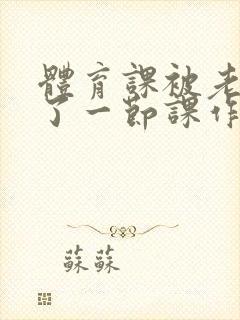 體育課被老
了一節課作
蘇蘇